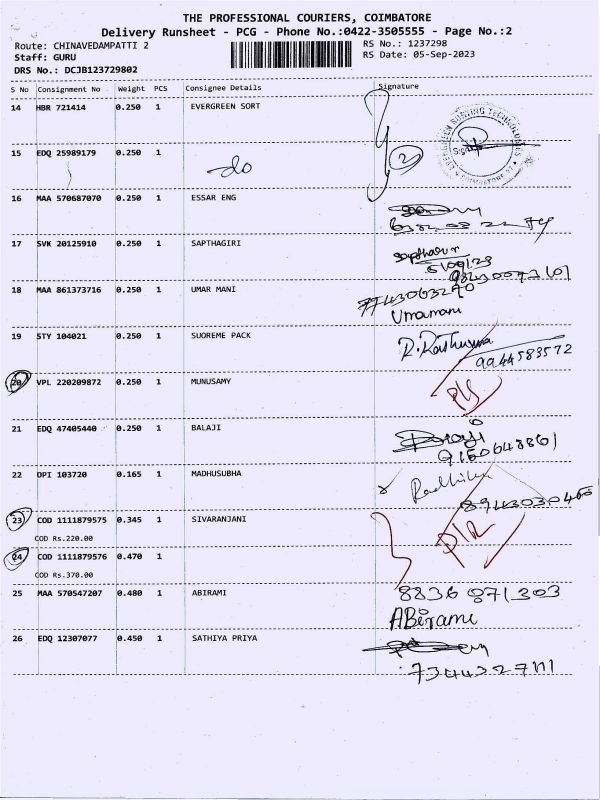 THE PROFESSIONAL COURIERS, COIMBATORE
Delivery Runsheet - PCG - Phone No.:0422-3505555 - Page No.:2
Route: CHINAVEDAMPATTI 2
RS No.: 1237298
Staff: GURU
RS Date: 05-Sep-2023
DRS No.: DCJB123729802
S No Consignment No Weight PCS Consignee Details Signature
14 HBR 721414 0.250 1 EVERGREEN SORT
15 EDQ 25989179 0.250 1 do 2
16 MAA 570687070 0.250 1 ESSAR ENG
17 SVK 20125910 0.250 1 SAPTHAGIRI
18 MAA 861373716 0.250 1 UMAR MANI
Umamani
19 STY 104021 0.250 1 SUOREME PACK
9944583572
20 VPL 220209872 0.250 1 MUNUSAMY
21 EDQ 47405440 0.250 1 BALAJI
22 DPI 103720 0.165 1 MADHUSUBHA
Radhika
8943030466
23 COD 1111879575 0.345 1 SIVARANJANI
COD Rs.220.00
24 COD 1111879576 0.470 1
COD Rs.370.00
25 MAA 570547207 0.480 1 ABIRAMI 8836071303
ABirami
26 EDQ 12307077 0.450 1 SATHIYA PRIYA